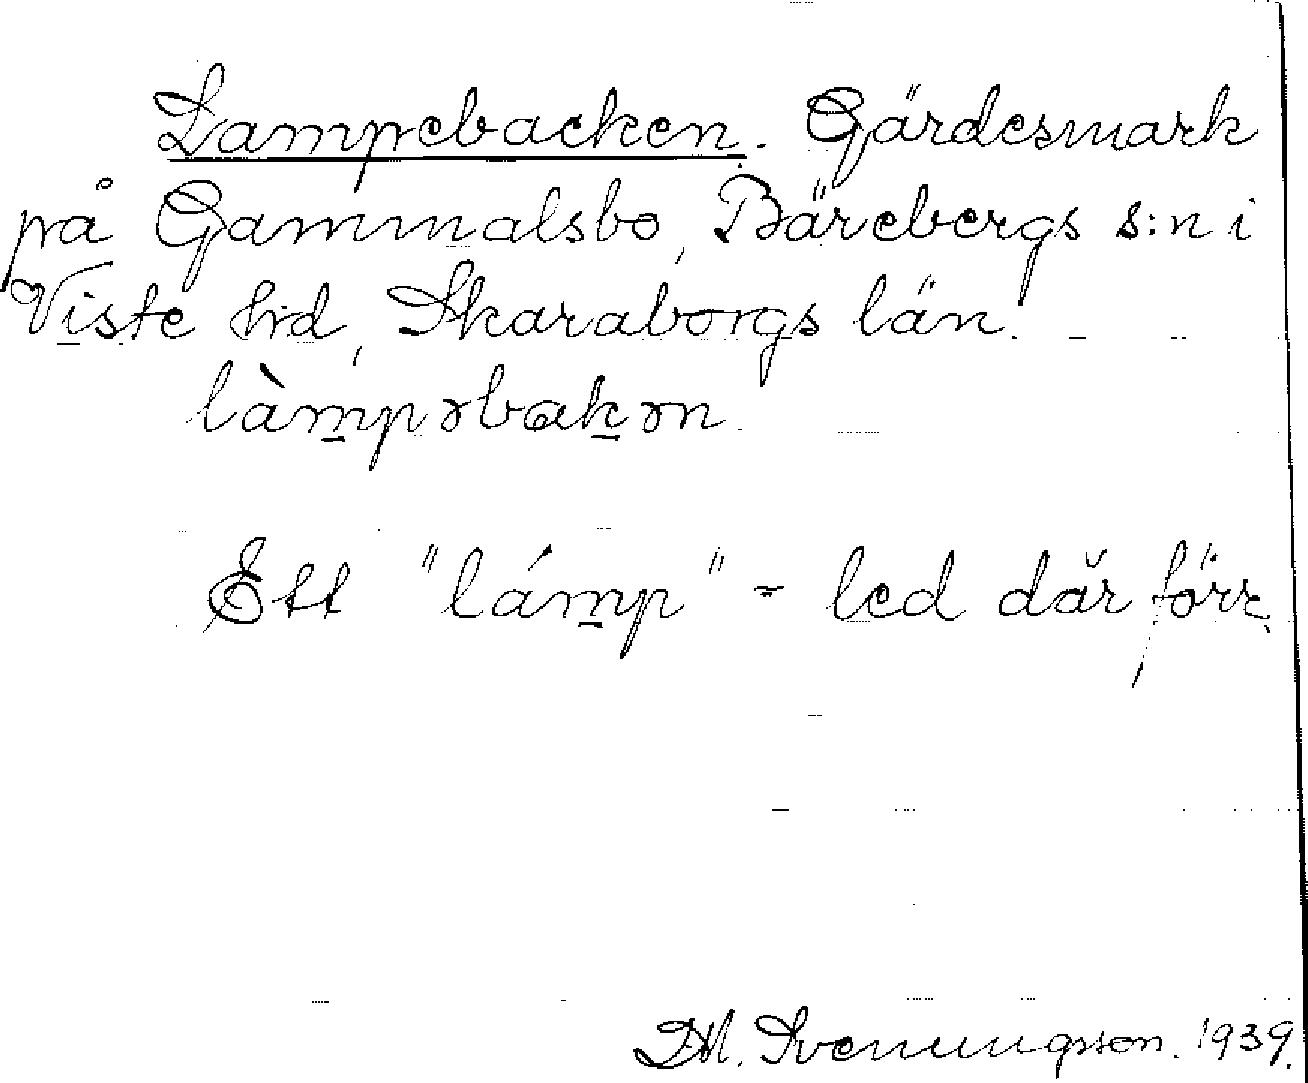 Lampebacken. Gärdesmark
på Gammalsbo, Bärebergs s:n i
Viste hd, Skaraborgs län.
làm̠pəbak̠ən.
Ett "lám̠p" = led där förr.
D.H. Svenungsson. 1939.